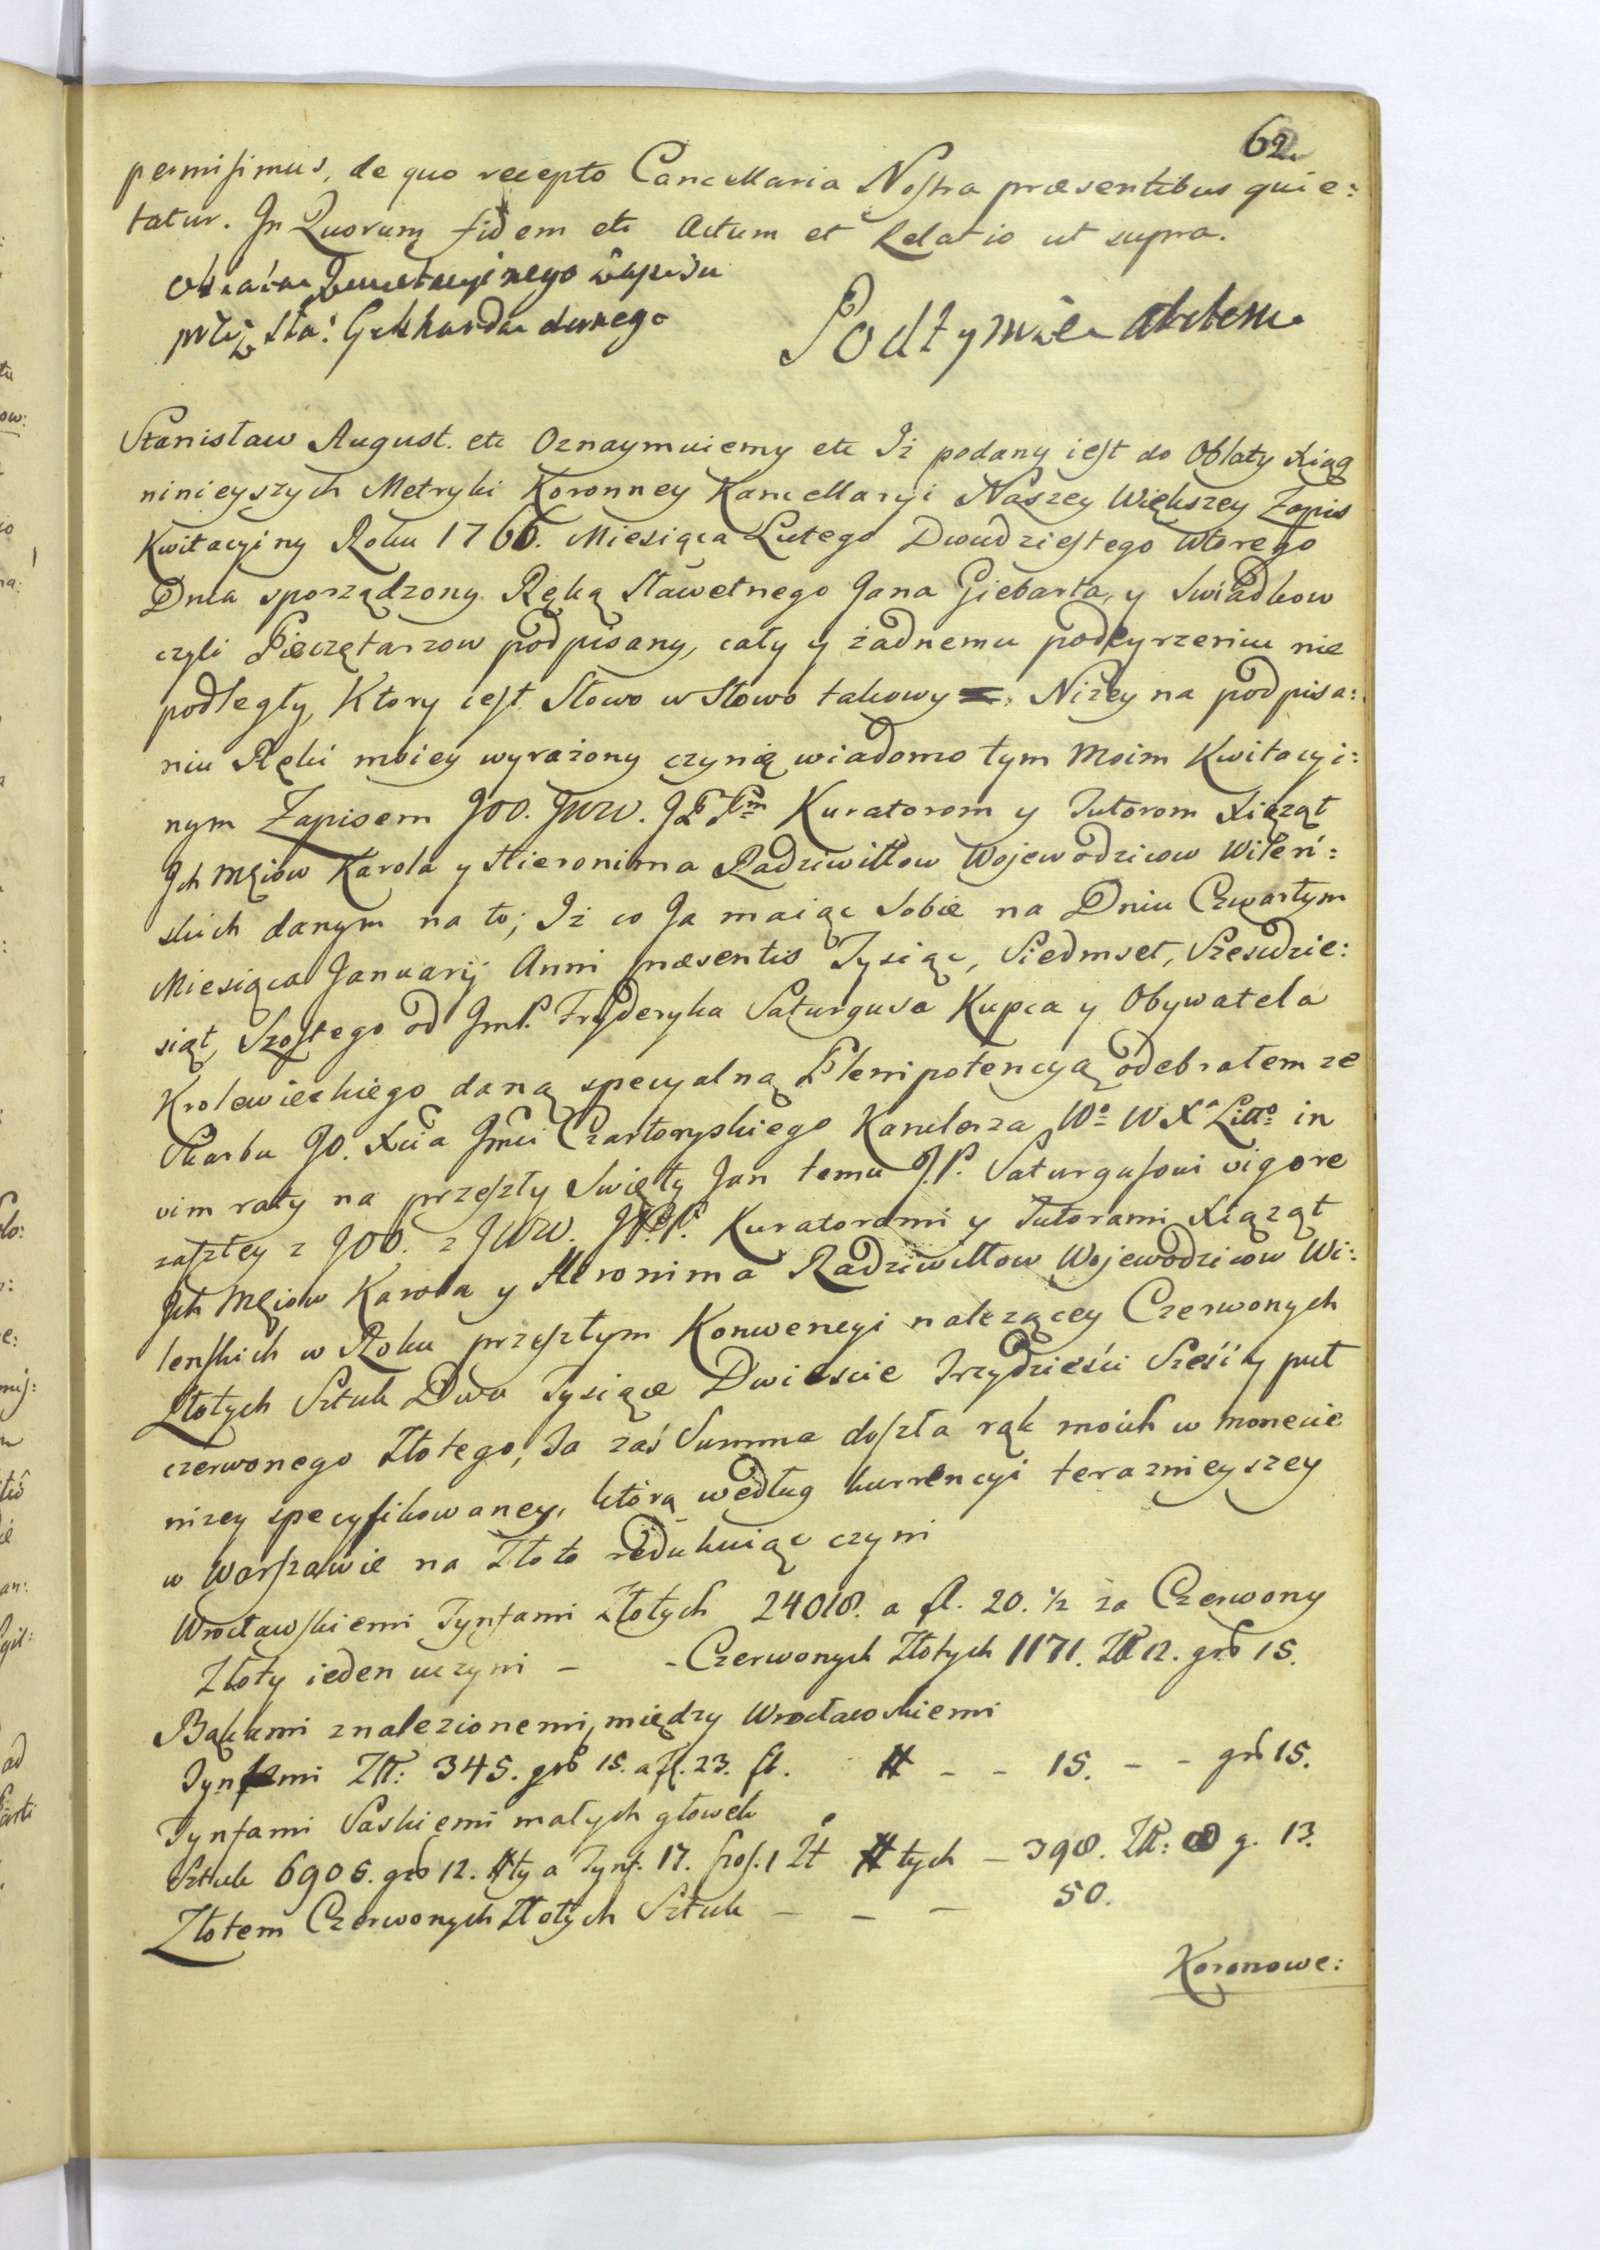 62.
permisimus, de quo recepto Cancellaria Nostra præsentibus quie:
tatur. In Quorum fidem etc Actum et Relatio ut supra.
Oblata Kwietacyinego Zapisu
przez Sła: Gebharda danego
Pod tymże Aktem
Stanisław August. etc Oznaymuiemy etc Iż podany iest do Oblaty Xiąg
ninieyszych Metryki Koronney Kancellaryi Naszey Większey Zapis
Kwitacyiny Roku 1766. Miesiąca Lutego Dwudziestego wtorego
Dnia sporządzony Ręką Sławetnego Jana Giebarta, y Swiadkow
czyli Pieczętarzow podpisany, cały y żadnemu podeyrzeniu nie
podległy, Ktory iest Słowo w Słowo takowy, Niżey na podpisa:
niu Ręki moiey wyrażony czynię wiadomo tym Moim Kwitacyi:
nym Zapisem JOO. JWW. Kuratorom y Tutorom Xiążąt
Ich Mciow Karola y Hieronima Radziwiłłow Wojewodzicow Wileń:
skich danym na to; Iż co Ja maiąc Sobie na Dniu Czwartym
Miesiąca Januarij Anni præsentis Tysiąc, Siedmset, Szesdzie:
siąt, Szostego od JmP. Fryderyka Saturgusa Kupca y Obywatela
Krolewieckiego daną specyalną Plenipotencyą odebrałem ze
Skarbu JO. Xcia Jmci Czartoryskiego Kanclerza Wo W Xa Litto in
vim raty na przeszły Swięty Jan temu J.P. Saturgusowi vigore
zaszłey z JOO. z JWW. JPP. Kuratorami y Tutorami Xiążąt
Ich Mciow Karola y Hieronima Radziwiłłow Wojewodzicow Wi:
lenskich w Roku przeszłym Konwencyi należącey Czerwonych
Złotych Sztuk Dwa Tysiące Dwiescie Trzydzieści Sześć y puł
czerwonego Złotego, Ta zaś Summa doszła rąk moich w monecie
niżey specyfikowaney, którą według kurrencyi teraznieyszey
w Warszawie na Złoto redukuiąc czyni
Wrocławskiemi Tynfami Złotych 24018. a fl. 20. ½ za Czerwony
Złoty ieden uczyni - - Czerwonych Złotych 1171. Zł 12. gro 15.
Bąkami znalezionemi, między Wrocławskiemi
Tynfami Złł: 345. gro 15. a fl. 23. fl. # - - 15. - - gro 15.
Tynfami Saskiemi małych głowek
Sztuk 6905. gro 12. #ty a Tynf. 17. szos. 1 Zł #tych - 398. Zł: 8 g. 13.
Złotem Czerwonych Złotych Sztuk - - - 50.
Koronowe: